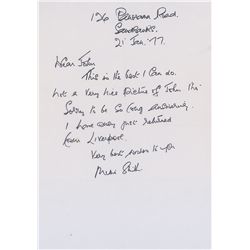 126 Panorama Road.
Sandbanks.
21 Jan. '77.
Dear John
This is the best I can do.
Not a very nice picture of John tho'
Sorry to be so long answering.
I have only just returned
from Liverpool.
Very best wishes to you
Mimi Smith